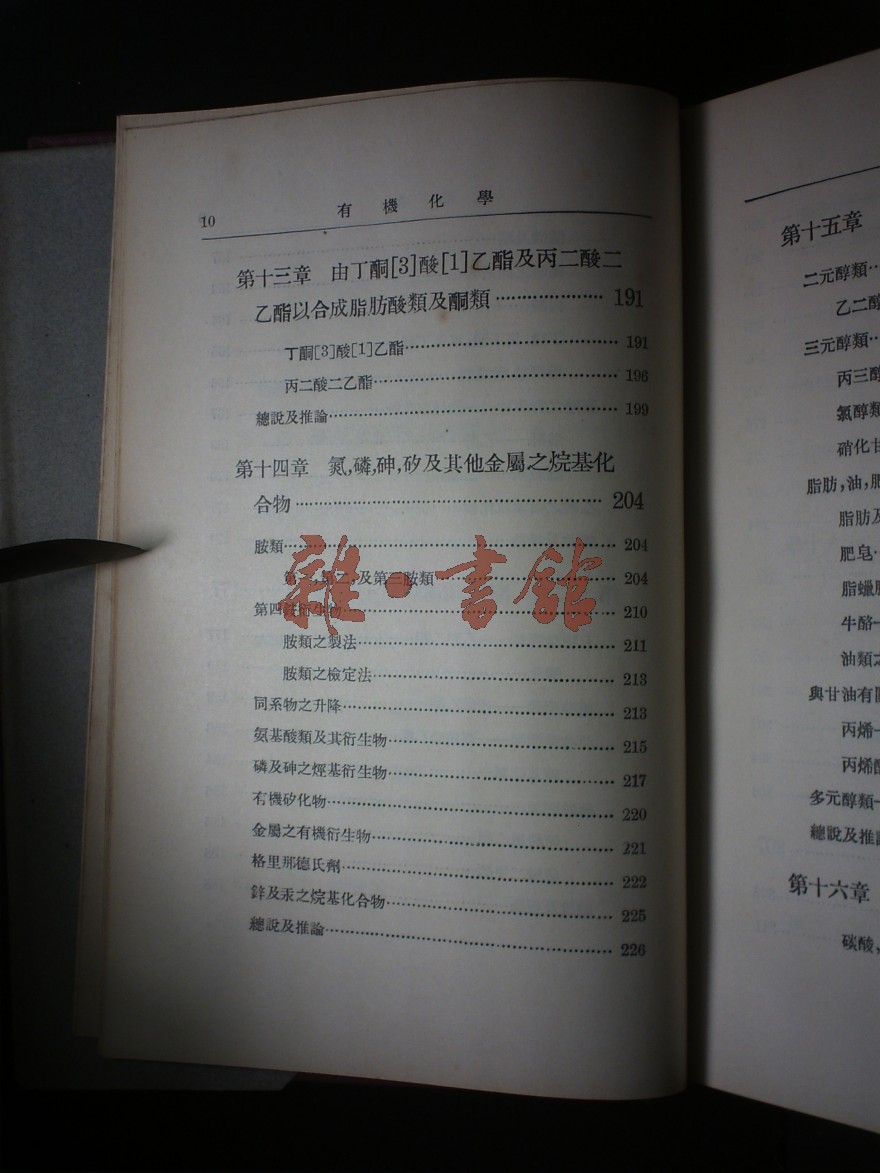 10 有機化學
第十三章 由丁酮[3]酸[1]乙酯及丙二酸二
乙酯以合成脂肪酸類及酮類 191
丁酮[3]酸[1]乙酯 191
丙二酸二乙酯 196
總說及推論 199
第十四章 氮,磷,砷,矽及其他金屬之烷基化
合物 204
胺類 204
第一,第二,及第三胺類 204
第四銨衍生物 210
胺類之製法 211
胺類之檢定法 213
同系物之升降 213
氨基酸類及其衍生物 215
磷及砷之烴基衍生物 217
有機矽化物 220
金屬之有機衍生物 221
格里那德氏劑 222
鋅及汞之烷基化合物 225
總說及推論 226
雜·書館
第十五章
二元醇類
乙二醇
三元醇類
丙三醇
氯醇類
硝化甘
脂肪,油,肥
脂肪及
肥皂
脂蠟
牛酪
油類之
與甘油有關
丙烯
丙烯醛
多元醇類
總說及推論
第十六章
碳酸,